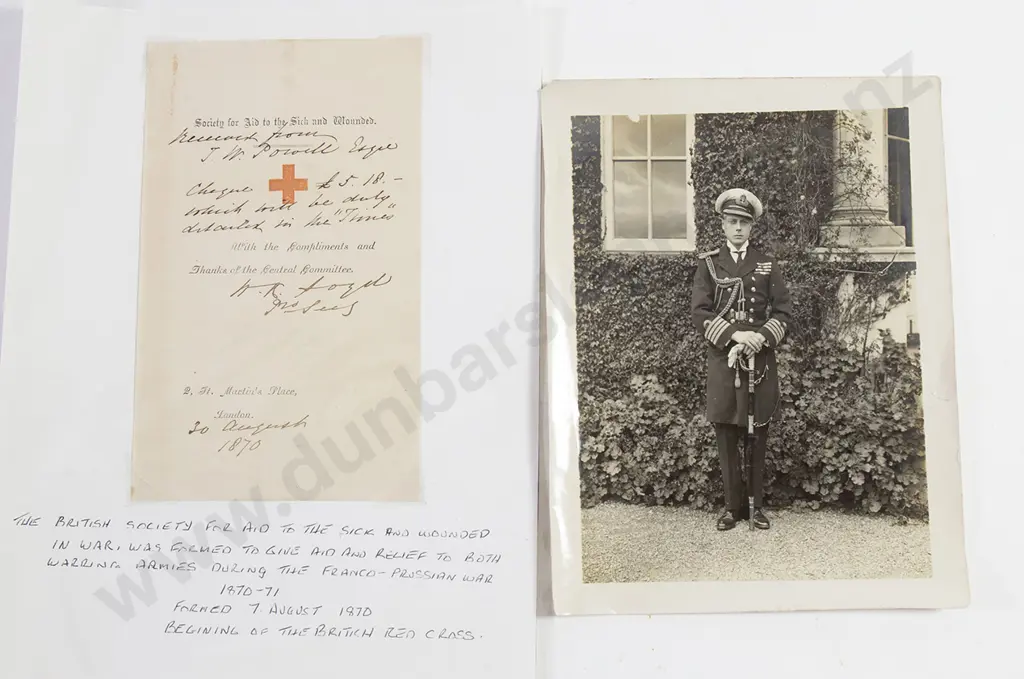 Society for Aid to the Sick and Wounded.
Received from
T. W. Powell Esqre
Cheque £5.18.-
which will be duly
in the "Times"
With the Compliments and
Thanks of the Central Committee.
2, St. Martin's Place,
London.
30 August
1870
THE BRITISH SOCIETY FOR AID TO THE SICK AND WOUNDED
IN WAR, WAS FORMED TO GIVE AID AND RELIEF TO BOTH
WARRING ARMIES DURING THE FRANCO-PRUSSIAN WAR
1870-71
FORMED 7. AUGUST 1870
BEGINING OF THE BRITICH RED CROSS.